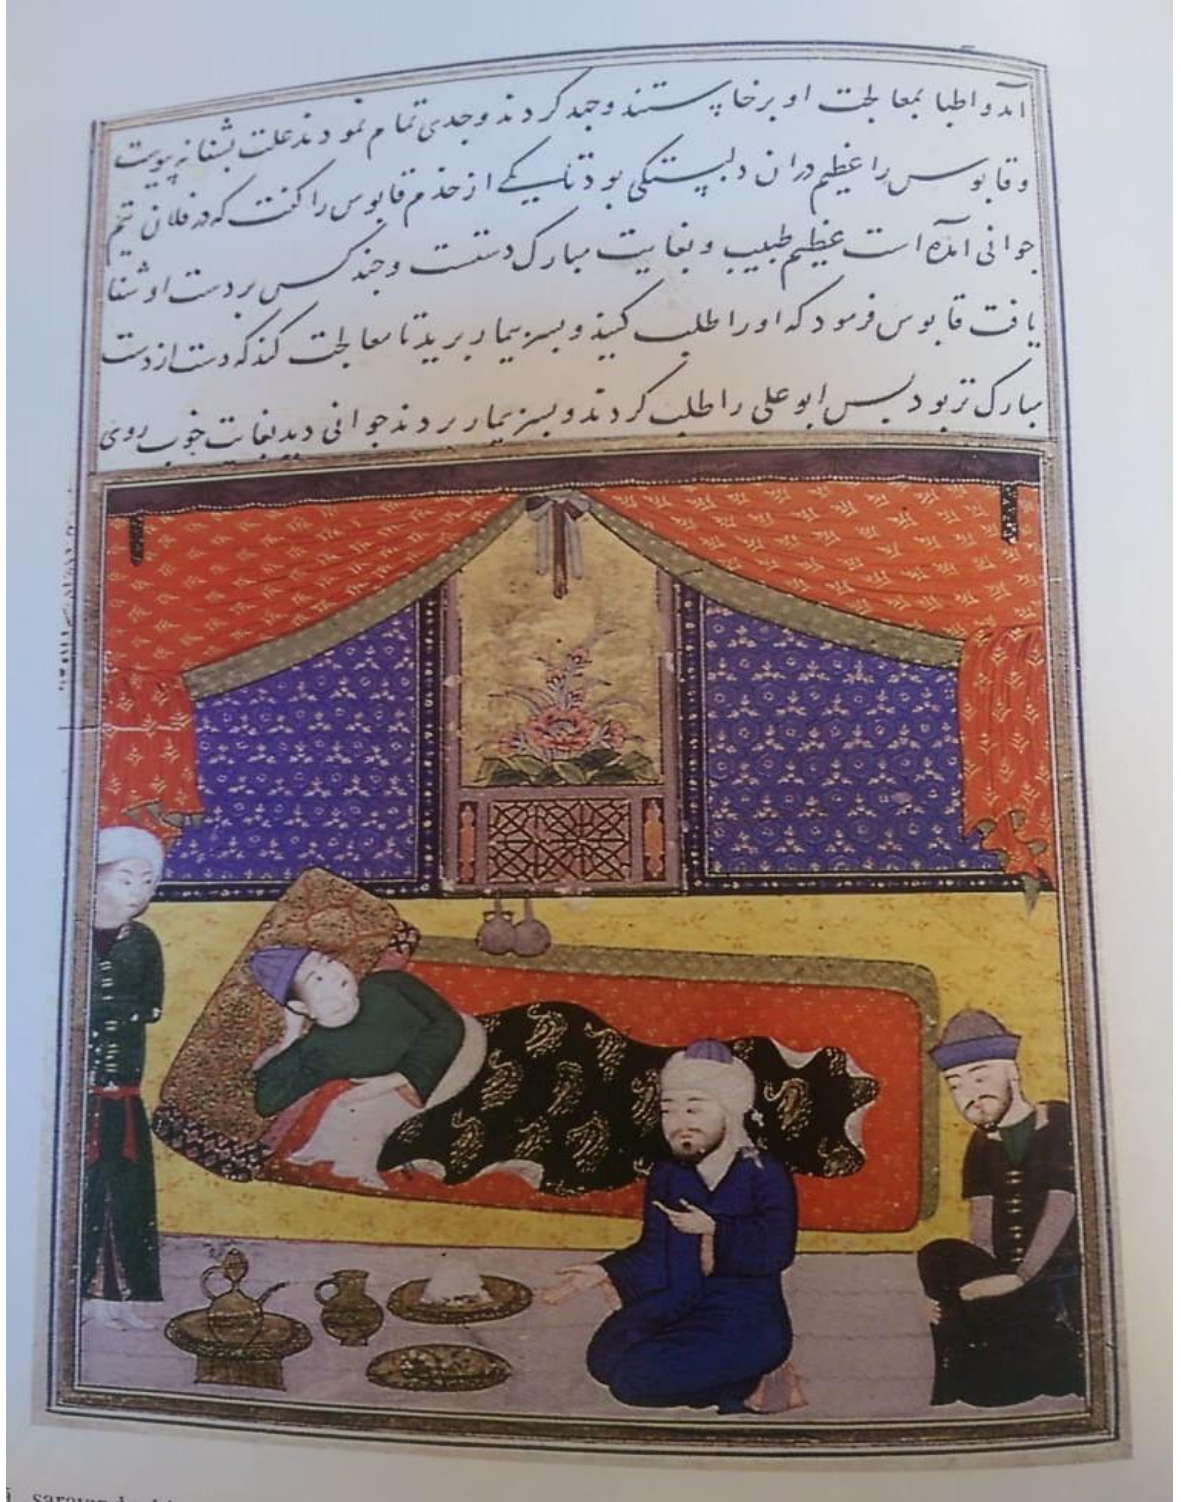 آمد و اطبا بمعالجت او برخاستند و جهد کردند و جدی تمام نمودند علت بشفا نپیوست
و قابوس را عظیم در ان دلبستکی بود تا یکی از خدم قابوس را کفت که در فلان تیم
جوانی آمده است عظیم طبیب و بغایت مبارک دستست و چند کس بر دست او شفا
یافت قابوس فرمود که او را طلب کنید و بسر بیمار برید تا معالجت کند که دست از دست
مبارک تر بود بس ابو علی را طلب کردند و بسر بیمار بردند جوانی دید بغایت خوب روی